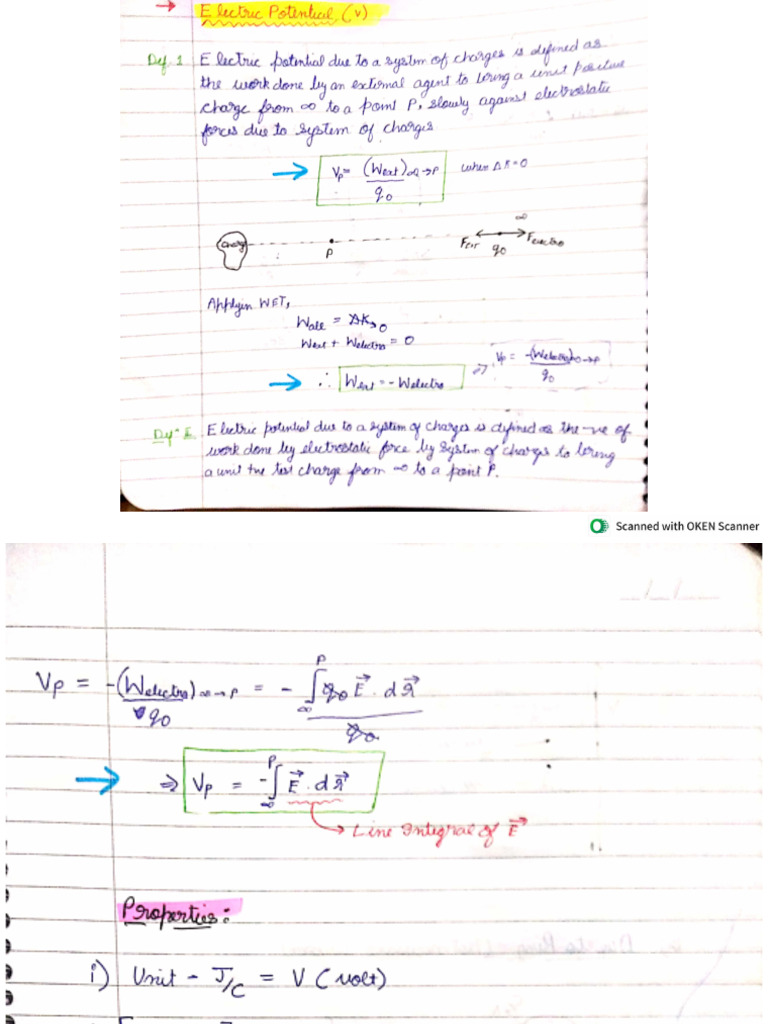 Electric Potential (v)
Def. 1 Electric potential due to a system of charges is defined as
the work done by an external agent to bring a unit positive
charge from ∞ to a point P, slowly against electrostatic
forces due to system of charges
Vp = (Wext)∞→P / q0 when ΔK=0
∞
Fext q0 Felectro
P
Applyin WET,
Wall = ΔK→0
Wext + Welectro = 0
∴ Wext = - Welectro ⇒ Vp = -(Welectro)∞→P / q0
Def-II Electric potential due to a system of charges is defined as the -ve of
work done by electrostatic force by system of charges to bring
a unit +ve test charge from ∞ to a point P.
Scanned with OKEN Scanner
Vp = -(Welectro)∞→P / q0 = - ∫∞^P q0 E⃗ . dr⃗ / q0
⇒ Vp = -∫∞^P E⃗ . dr⃗
Line Integral of E⃗
Properties:
i) Unit - J/C = V (volt)